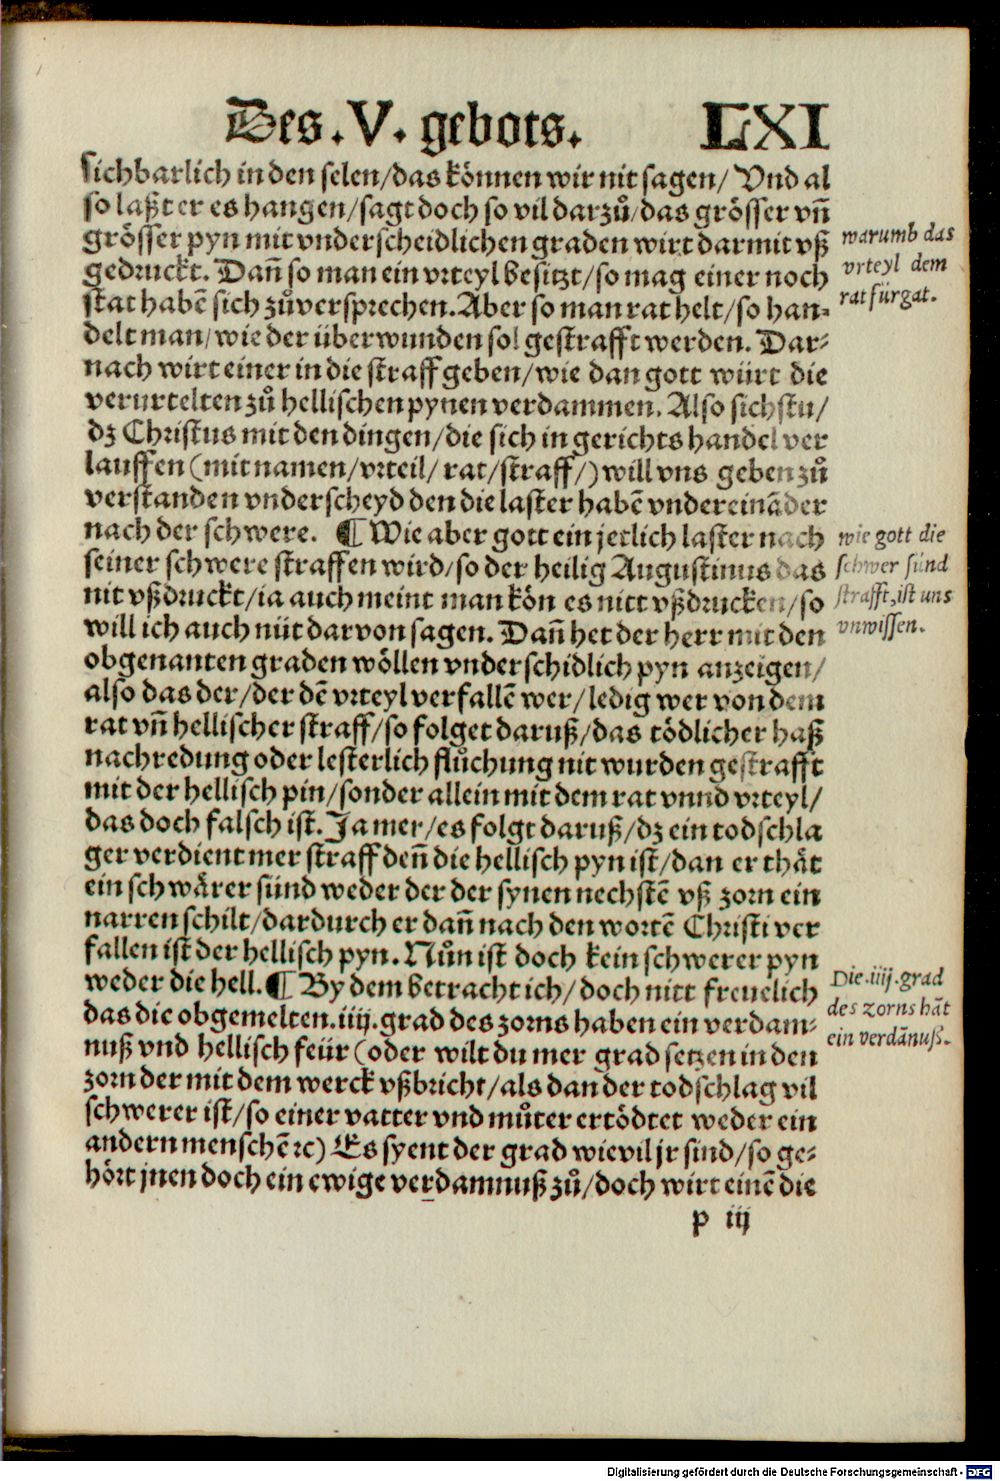 Des. V. gebots. LXI
sichbarlich in den selen/das können wir nit sagen/ Vnd al
so laßt er es hangen/sagt doch so vil darzů/das grösser vñ
grösser pyn mit vnderscheidlichen graden wirt darmit vß
gedruckt. Dañ so man ein vrteyl besitzt/so mag einer noch
stat habẽ sich zůversprechen. Aber so man rat helt/so han⸗
delt man/wie der überwunden sol gestrafft werden. Dar⸗
nach wirt einer in die straff geben/wie dan gott würt die
verurtelten zů hellischen pynen verdammen. Also sichstu/
dz Christus mit den dingen/die sich in gerichts handel ver
lauffen (mit namen/vrteil/rat/straff/) will vns geben zů
verstanden vnderscheyd den die laster habẽ vndereinãder
nach der schwere. ¶ Wie aber gott ein jetlich laster nach
seiner schwere straffen wird/so der heilig Augustinus das
nit vßdruckt/ia auch meint man kön es nitt vßdrucken/so
will ich auch nüt darvon sagen. Dañ het der herr mit den
obgenanten graden wöllen vnderschidlich pyn anzeigen/
also das der/der dẽ vrteyl verfallẽ wer/ledig wer von dem
rat vñ hellischer straff/so folget daruß/das tödlicher haß
nachredung oder lesterlich flůchung nit wurden gestrafft
mit der hellisch pin/sonder allein mit dem rat vnnd vrteyl/
das doch falsch ist. Ja mer/es folgt daruß/dz ein todschla
ger verdient mer straff deñ die hellisch pyn ist/dan er thåt
ein schwårer sünd weder der der synen nechstẽ vß zorn ein
narren schilt/dardurch er dañ nach den wortẽ Christi ver
fallen ist der hellisch pyn. Nůn ist doch kein schwerer pyn
weder die hell. ¶ By dem betracht ich/doch nitt freuelich
das die obgemelten.iiij.grad des zorns haben ein verdam⸗
nuß vnd hellisch feür (oder wilt du mer grad setzen in den
zorn der mit dem werck vßbricht/als dan der todschlag vil
schwerer ist/so einer vatter vnd můter ertödtet weder ein
andern menschẽ ⁊c) Es syent der grad wievil jr sind/so ge⸗
hört jnen doch ein ewige verdamnuß zů/doch wirt einẽ die
p iij
warumb das
vrteyl dem
rat fürgat.
wie gott die
schwer sünd
strafft, ist uns
vnwissen.
Die .iiij. grad
des zorns hãt
ein verdãnuß.
Digitalisierung gefördert durch die Deutsche Forschungsgemeinschaft - DFG